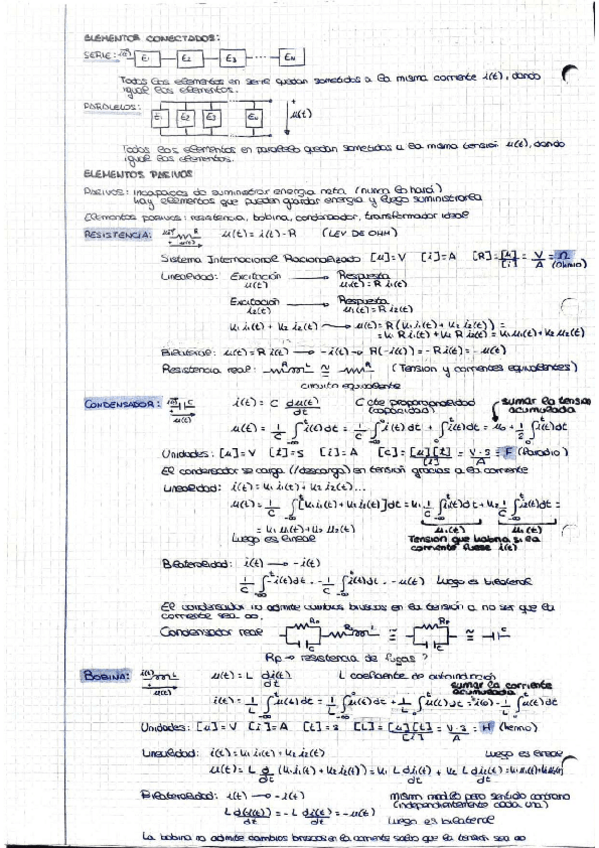 ELEMENTOS CONECTADOS:
SERIE: i(t) E1 E2 E3 ... EN
Todos los elementos en serie quedan sometidos a la misma corriente i(t), dando
igual los elementos.
PARALELOS: E1 E2 E3 EN u(t)
Todos los elementos en paralelo quedan sometidos a la misma tensión u(t), dando
igual los elementos.
ELEMENTOS PASIVOS
Pasivos: incapaces de suministrar energía neta (nunca lo hará)
hay elementos que pueden guardar energía y luego suministrarla
Elementos pasivos: resistencia, bobina, condensador, transformador ideal
RESISTENCIA: R u(t) = i(t)·R (LEY DE OHM)
Sistema Internacional Racionalizado [u]=V [i]=A [R]=[u]/[i] = V/A = Ω (Ohmio)
Linealidad: Excitación → Respuesta
Excitación → Respuesta
i2(t)
Bilateral: u(t)=R i(t) → -i(t) → R(-i(t)) = -R i(t) = -u(t)
Resistencia real: ≅ (Tension y corrientes equivalentes)
circuito equivalente
CONDENSADOR: C i(t) = C du(t)/dt C cte proporcionalidad
(capacidad)
sumar la tension
acumulada
Unidades: [u]=V [t]=s [i]=A [C]=[u][t]/[i] = V·s/A = F (Faradio)
El condensador se carga (/descarga) en tensión gracias a la corriente
Linealidad: i(t) = k1 i1(t) + k2 i2(t)...
= k1 u1(t) + k2 u2(t)
Luego es lineal
Tension que habria si la
corriente fuese i(t)
Bilateralidad: i(t) → -i(t)
Luego es bilateral
El condensador no admite cambios bruscos en la tensión a no ser que la
corriente sea ∞.
Condensador real Rp C ≅ Rp C ≅ C
Rp → resistencia de fugas ?
BOBINA: i(t) L u(t) u(t) = L di(t)/dt L coeficiente de autoinducción
sumar la corriente
acumulada
Unidades: [u]=V [i]=A [t]=s [L]=[u][t]/[i] = V·s/A = H (henrio)
Linealidad: i(t) = k1 i1(t) + k2 i2(t) Luego es lineal
Bilateralidad: i(t) → -i(t) mismo modelo pero sentido contrario
(independientemente cada una)
L d(-i(t))/dt = -L di(t)/dt = -u(t) Luego es bilateral
La bobina no admite cambios bruscos en la corriente salvo que la tensión sea ∞